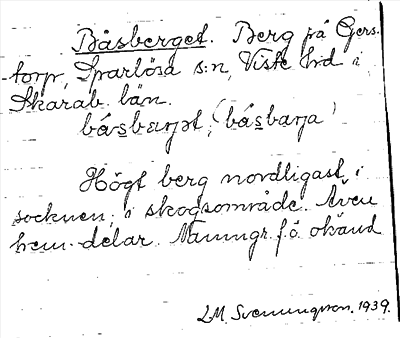 Båsberget. Berg på Gers-
torp, Sparlösa s:n, Viste hd i
Skarab. län.
båsbærjet, (båsbarja)
Högt berg nordligast i
socknen, i skogsområde. Även
hem.delar. Namngr. f.ö. okänd
LM. Svenungsson. 1939.